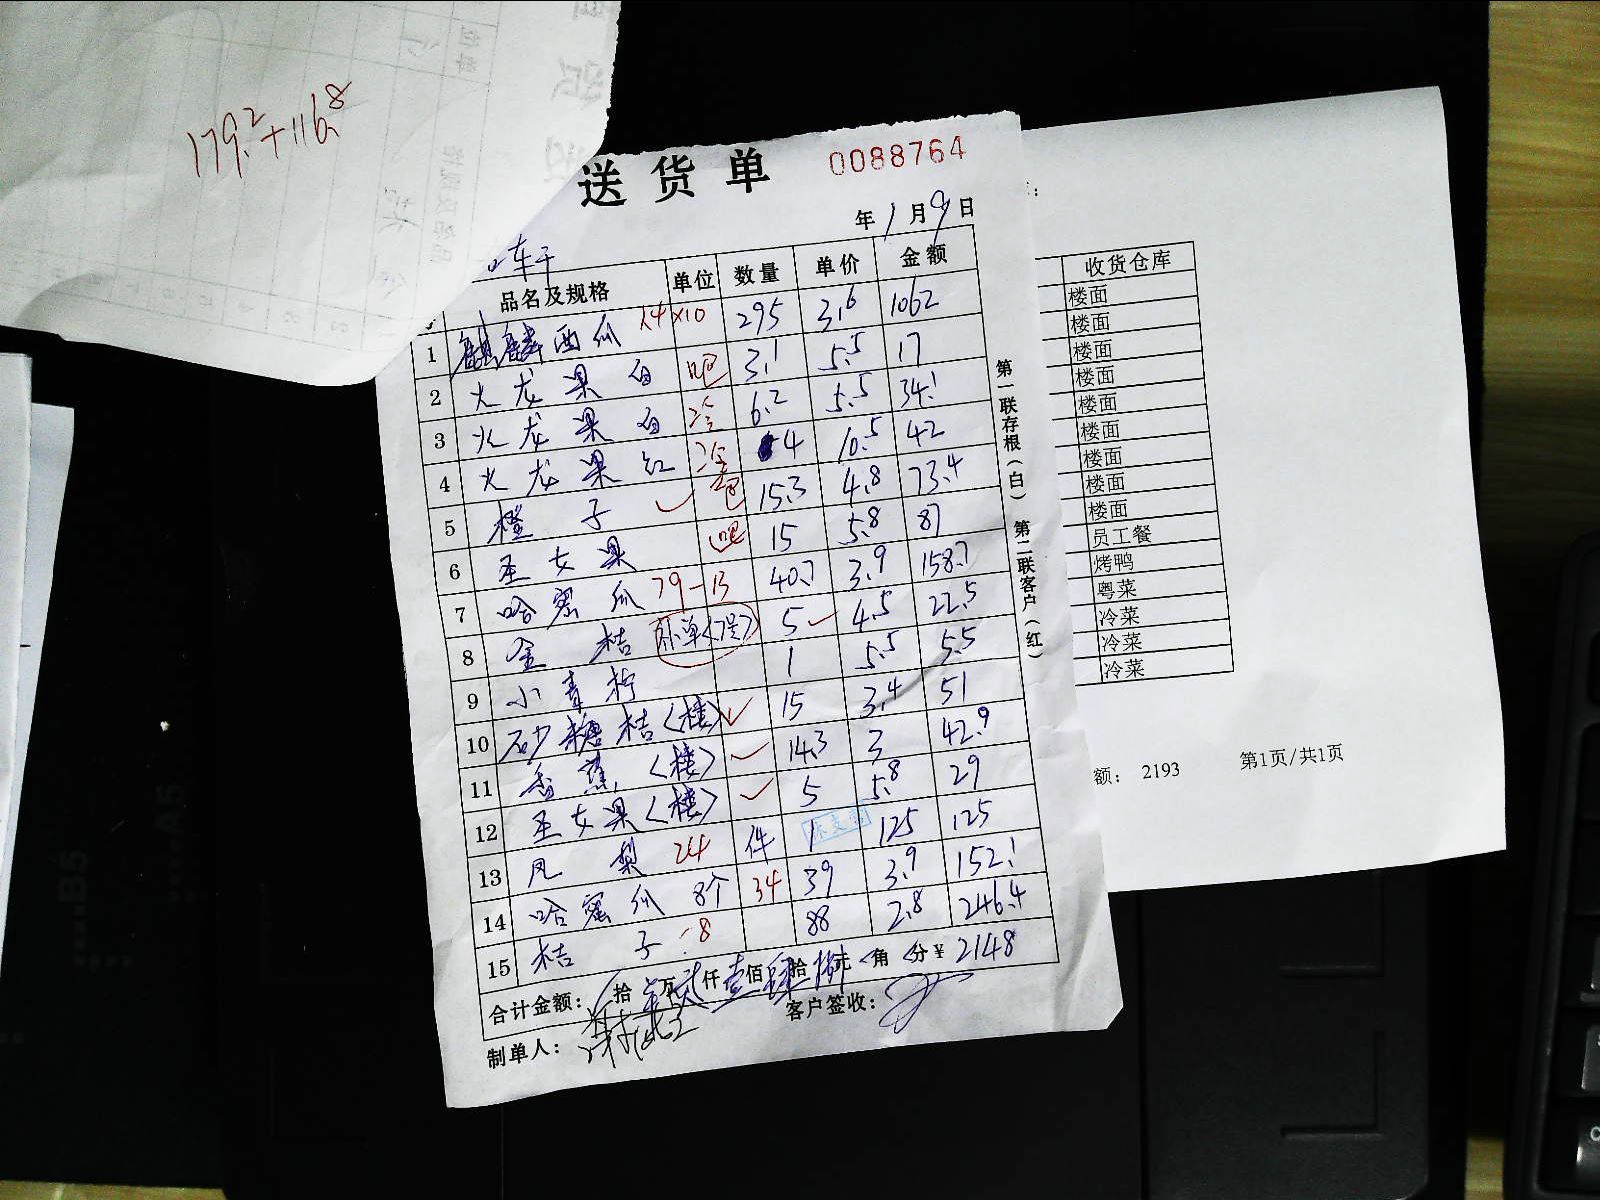 179.2+116.8
送货单 0088764
年1月9日
品名及规格 单位 数量 单价 金额
1 麒麟西瓜 ×10 295 3.6 1062
2 火龙果白 吧 3.1 5.5 17
3 火龙果白 冷 6.2 5.5 34.1
4 火龙果红 冷 4 10.5 42
5 橙子 吧 15.3 4.8 73.4
6 圣女果 吧 15 5.8 87
7 哈密瓜 79-13 40.7 3.9 158.7
8 金桔 补单(7号) 5 4.5 22.5
9 小青柠 1 5.5 5.5
10 砂糖桔(楼) 15 3.4 51
11 香蕉(楼) 14.3 3 42.9
12 圣女果(楼) 5 5.8 29
13 凤梨 24 件 1 125 125
14 哈密瓜 8个 34 39 3.9 152.1
15 桔子 -8 88 2.8 246.4
合计金额: 拾 万 仟壹佰肆拾捌元 角 分¥2148
制单人: 客户签收:
第一联存根(白) 第二联客户(红)
收货仓库
楼面
楼面
楼面
楼面
楼面
楼面
楼面
楼面
楼面
员工餐
烤鸭
粤菜
冷菜
冷菜
冷菜
额: 2193 第1页/共1页
B5
A5